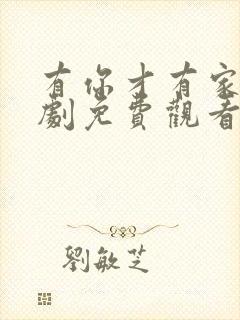 有你才有家
劇免費觀看
劉敏芝